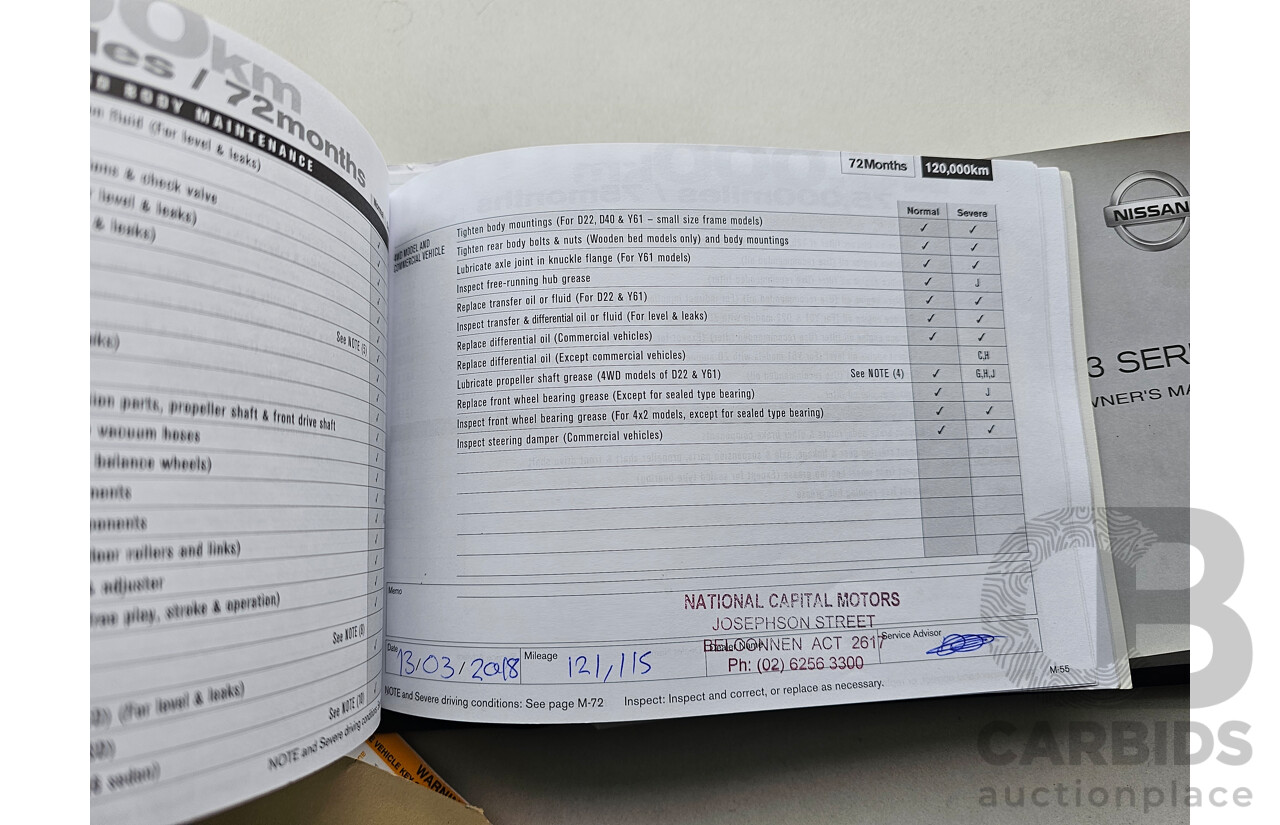 km
/ 72months
BODY MAINTENANCE
fluid (For level & leaks)
& check valve
level & leaks)
& leaks)
See NOTE (5)
parts, propeller shaft & front drive shaft
vacuum hoses
balance wheels)
rollers and links)
adjuster
play, stroke & operation)
See NOTE (8)
(For level & leaks)
See NOTE (10)
sedan)
NOTE and Severe driving
72Months 120,000km
Normal Severe
4WD MODEL AND
COMMERCIAL VEHICLE
Tighten body mountings (For D22, D40 & Y61 – small size frame models) ✓ ✓
Tighten rear body bolts & nuts (Wooden bed models only) and body mountings ✓ ✓
Lubricate axle joint in knuckle flange (For Y61 models) ✓ ✓
Inspect free-running hub grease ✓ J
Replace transfer oil or fluid (For D22 & Y61) ✓ ✓
Inspect transfer & differential oil or fluid (For level & leaks) ✓ ✓
Replace differential oil (Commercial vehicles) ✓ ✓
Replace differential oil (Except commercial vehicles) C,H
Lubricate propeller shaft grease (4WD models of D22 & Y61) See NOTE (4) ✓ G,H,J
Replace front wheel bearing grease (Except for sealed type bearing) ✓ J
Inspect front wheel bearing grease (For 4x2 models, except for sealed type bearing) ✓ ✓
Inspect steering damper (Commercial vehicles) ✓ ✓
Memo
NATIONAL CAPITAL MOTORS
JOSEPHSON STREET
BELCONNEN ACT 2617
Ph: (02) 6256 3300
Date 13/03/2018 Mileage 121,115 Service Advisor
M-55
NOTE and Severe driving conditions: See page M-72 Inspect: Inspect and correct, or replace as necessary.
NISSAN
3 SERI
WNER'S MA
VEHICLE KEY
WARNIN
CB
CARBIDS
auctionplace